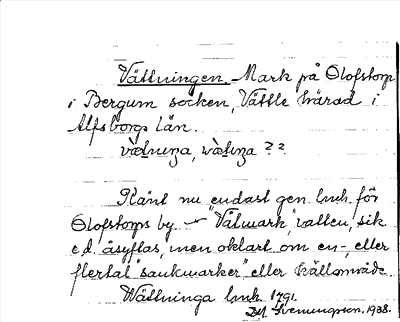 Vättningen. Mark på Olofstorp
i Bergum socken, Vättle härad i
Älfsborgs län.
vætniŋa, wætiŋa ??
Känt nu endast gen. lmk. för
Olofstorps by — "Vatmark", vatten, sik
e.d. åsyftas, men oklart om en-, eller
flertal "sankmarker" eller källområde.
Wättninga lmk. 1791.
Svenungsson, 1938.